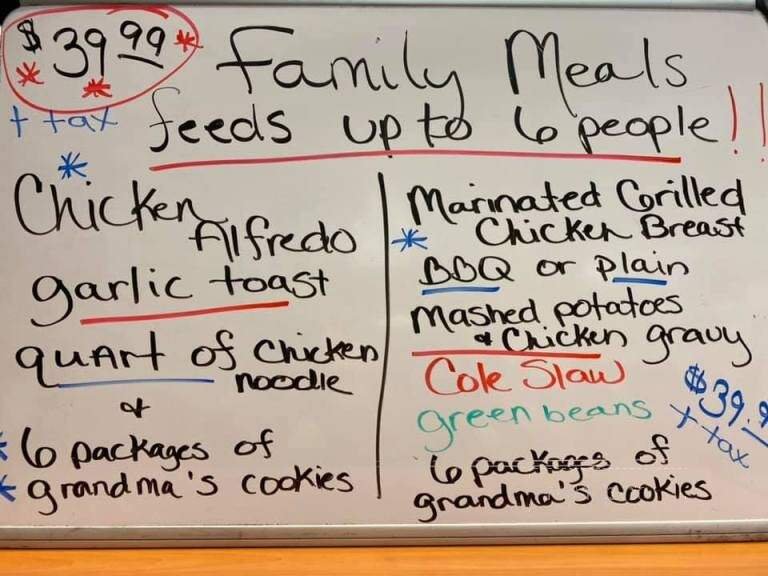 $39.99
+ tax
Family Meals
feeds up to 6 people!!
Chicken
Alfredo
garlic toast
quart of chicken
noodle
&
6 packages of
grandma's cookies
Marinated Grilled
Chicken Breast
BBQ or plain
Mashed potatoes
& Chicken gravy
Cole Slaw
green beans
$39.9
+ tax
6 packages of
grandma's cookies